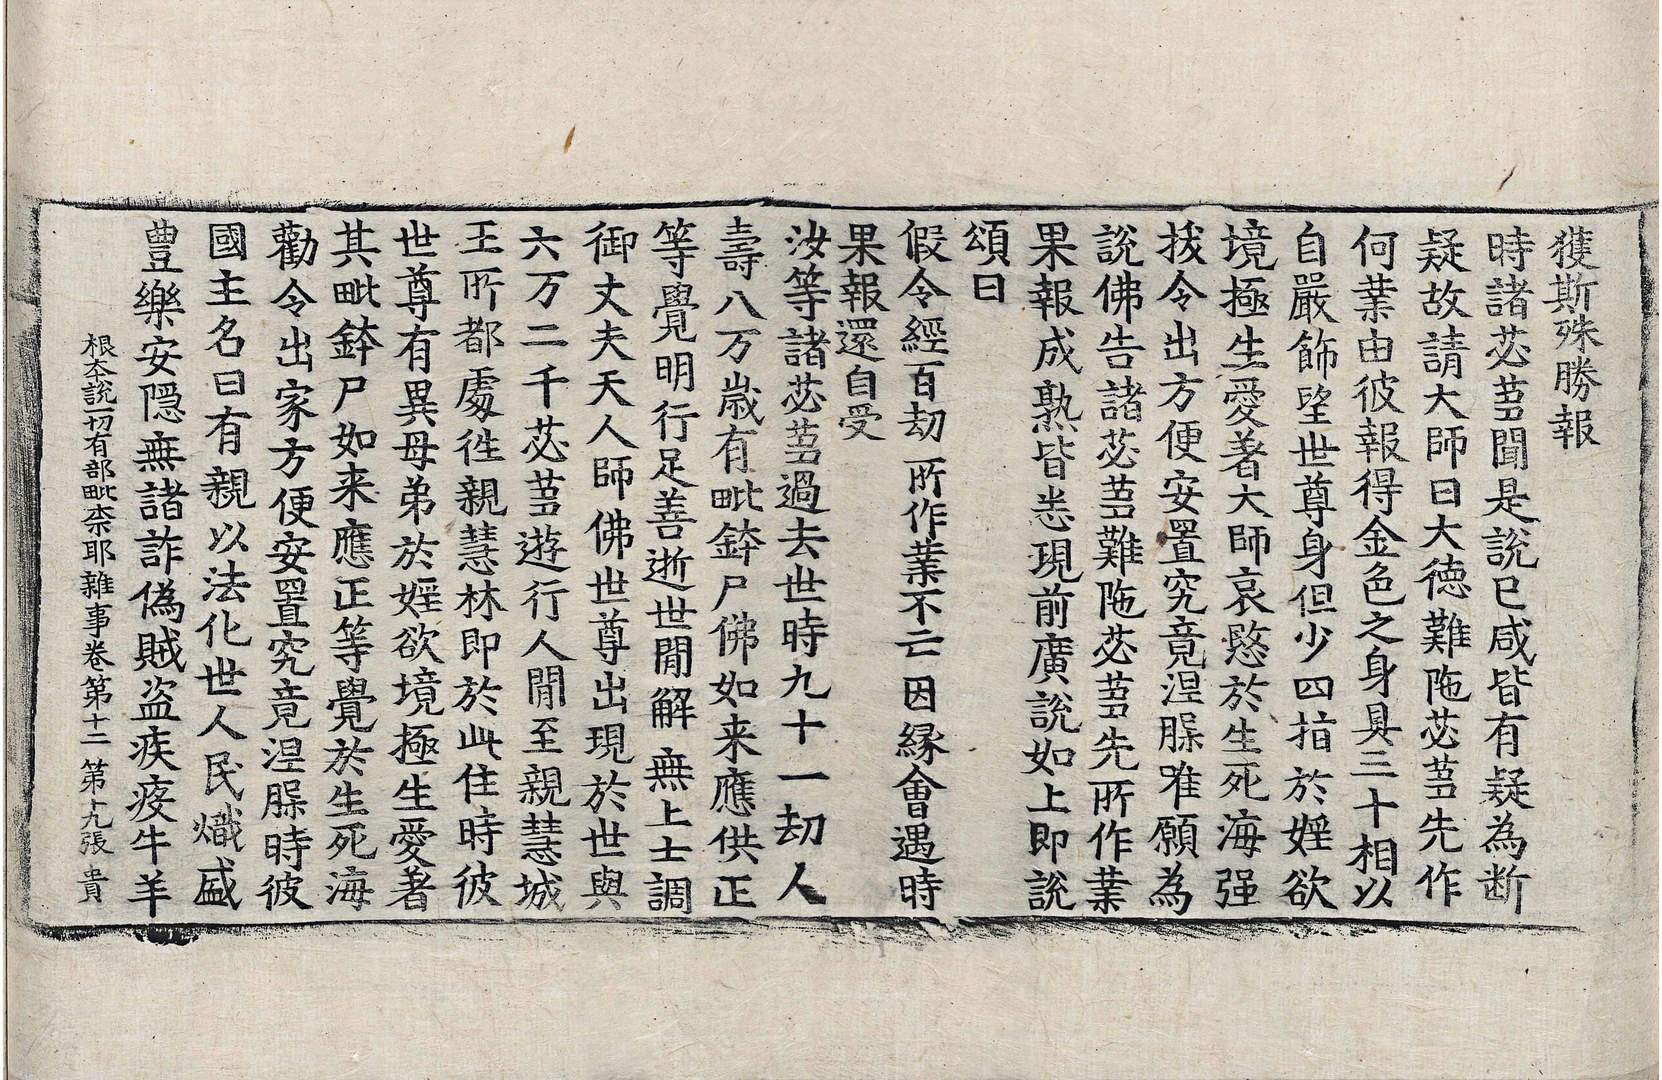 獲斯殊勝報
時諸苾蒭聞是說已咸皆有疑為斷
疑故請大師曰大德難陁苾蒭先作
何業由彼報得金色之身具三十相以
自嚴飾望世尊身但少四指於婬欲
境極生愛著大師哀愍於生死海强
拔令出方便安置究竟涅槃唯願為
說佛告諸苾蒭難陁苾蒭先所作業
果報成熟皆悉現前廣說如上即說
頌曰
假令經百劫 所作業不亡 因緣會遇時
果報還自受
汝等諸苾蒭過去世時九十一劫人
壽八万歲有毗鉢尸佛如来應供正
等覺明行足善逝世閒解無上士調
御丈夫天人師佛世尊出現於世與
六万二千苾蒭遊行人閒至親慧城
王所都處徃親慧林即於此住時彼
世尊有異母弟於婬欲境極生愛著
其毗鉢尸如来應正等覺於生死海
勸令出家方便安置究竟涅槃時彼
國主名曰有親以法化世人民熾盛
豊樂安隱無諸詐偽賊盗疾疫牛羊
根本說一切有部毗奈耶雜事卷第十二 第十九張 貴